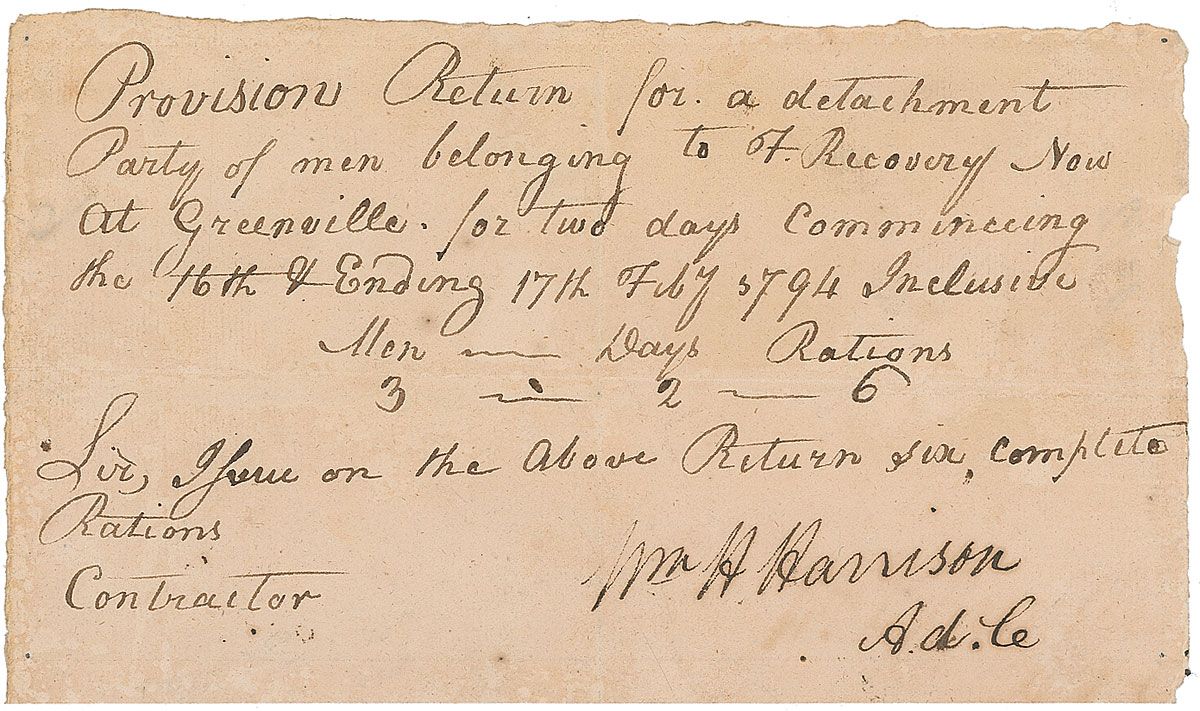 Provision Return for. a detachment
Party of men belonging to F. Recovery Now
At Greenville. for two days Comminceing
the 16th & Ending 17th Feby 1794 Inclusive
Men — Days Rations
3 — 2 — 6
Sir, Issue on the Above Return six, complete
Rations
Contractor
Wm H Harrison
A.d.Ce